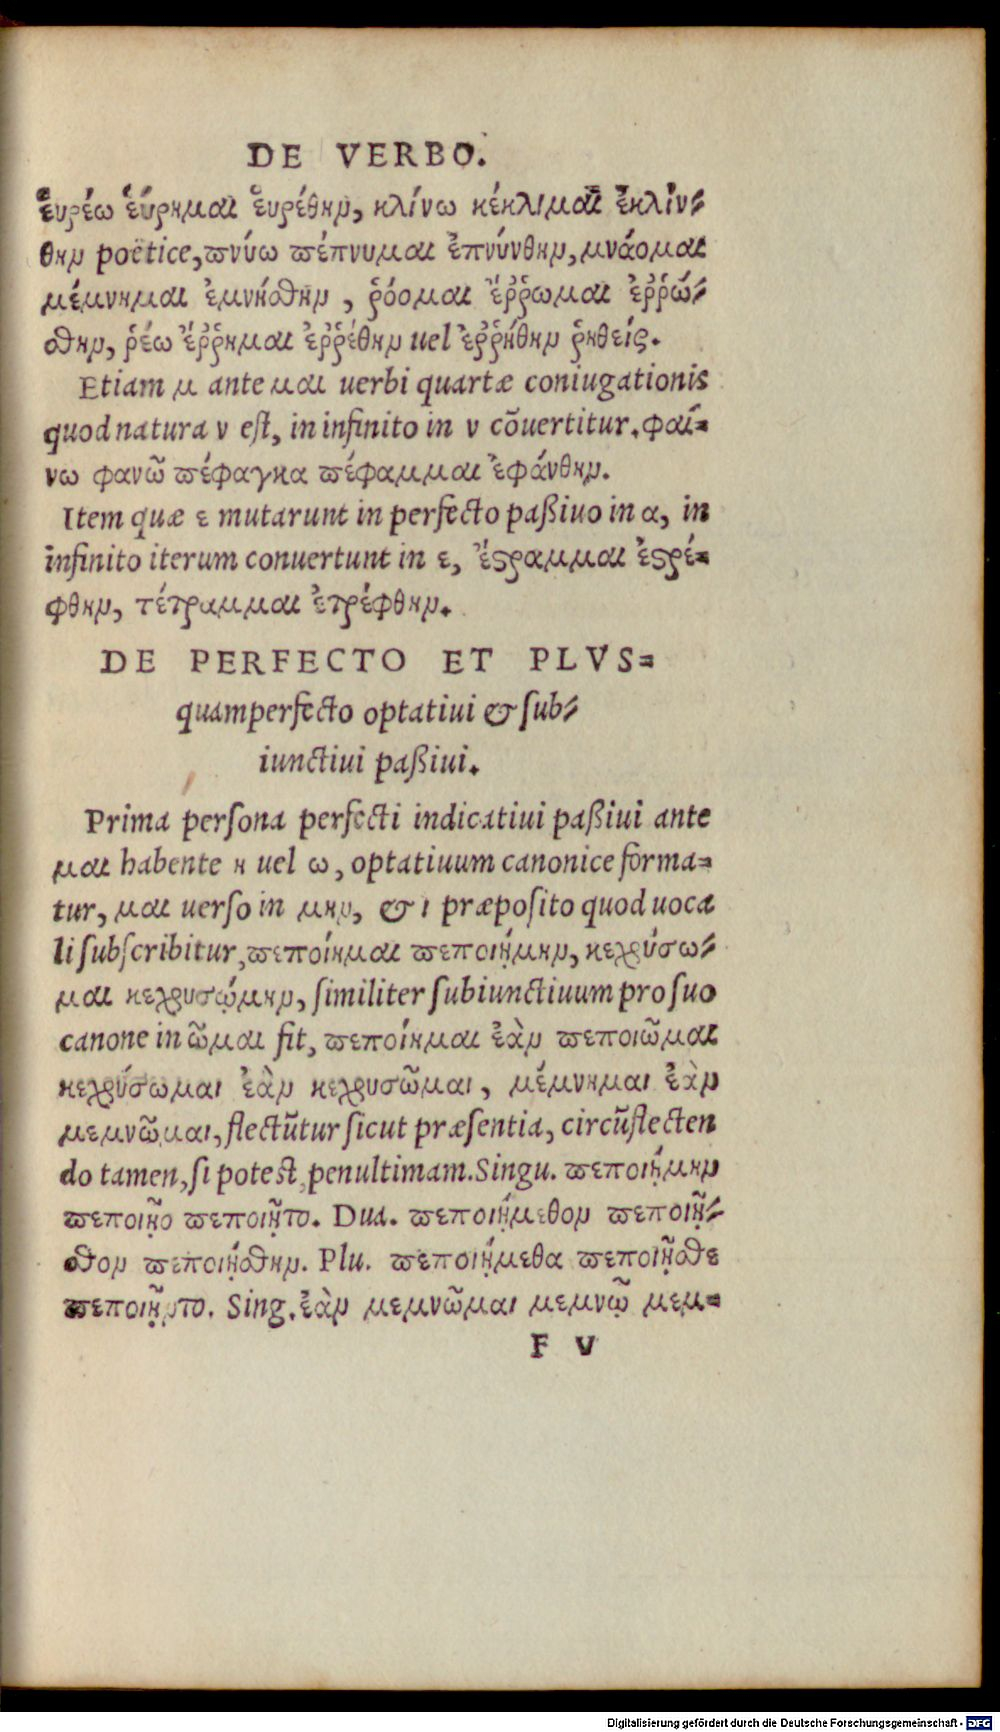 DE VERBO.
εὑρέω εὕρημαι εὑρέθην, κλίνω κέκλιμαι ἐκλίν-
θην poëtice, πνύω πέπνυμαι ἐπνύνθην, μνάομαι
μέμνημαι ἐμνήσθην, ῥόομαι ἔῤῥωμαι ἐῤῥώ-
σθην, ῥέω ἔῤῥημαι ἐῤῥέθην uel ἐῤῥήθην ῥηθείς.
Etiam μ ante μαι uerbi quartæ coniugationis
quod natura ν est, in infinito in ν cōuertitur. φαί=
νω φανῶ πέφαγκα πέφαμμαι ἐφάνθην.
Item quæ ε mutarunt in perfecto paßiuo in α, in
infinito iterum conuertunt in ε, ἔϛραμμαι ἐϛρέ=
φθην, τέτραμμαι ἐτρέφθην.
DE PERFECTO ET PLVS=
quamperfecto optatiui & sub-
iunctiui paßiui.
Prima persona perfecti indicatiui paßiui ante
μαι habente η uel ω, optatiuum canonice forma=
tur, μαι uerso in μην, & ι præposito quod uoca
li subscribitur, πεποίημαι πεποιῄμην, κεχρύσω-
μαι κεχρυσῴμην, similiter subiunctiuum pro suo
canone in ῶμαι fit, πεποίημαι ἐὰν πεποιῶμαι
κεχρύσωμαι ἐὰν κεχρυσῶμαι, μέμνημαι ἐὰν
μεμνῶμαι, flectūtur sicut præsentia, circūflecten
do tamen, si potest, penultimam. Singu. πεποιῄμην
πεποιῇο πεποιῇτο. Dua. πεποιῄμεθον πεποιῇ-
σθον πεποιῄσθην. Plu. πεποιῄμεθα πεποιῇσθε
πεποιῇντο. Sing. ἐὰν μεμνῶμαι μεμνῷ μεμ=
F v
Digitalisierung gefördert durch die Deutsche Forschungsgemeinschaft - DFG